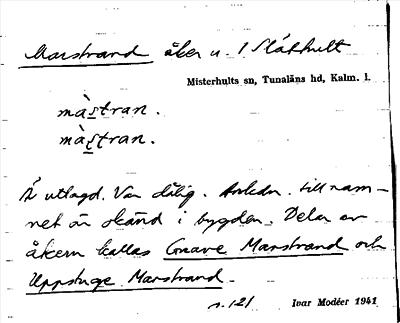 Marstrand åker u. 1 Slähult
Misterhults sn, Tunaläns hd, Kalm. l.
màstran.
màștran.
Är utlagd. Var dålig. Anledn. till nam-
net är okänd i bygden. Delar av
åkern kallas Gnave Marstrand och
Uppstuge Marstrand.
s. 121 Ivar Modéer 1941